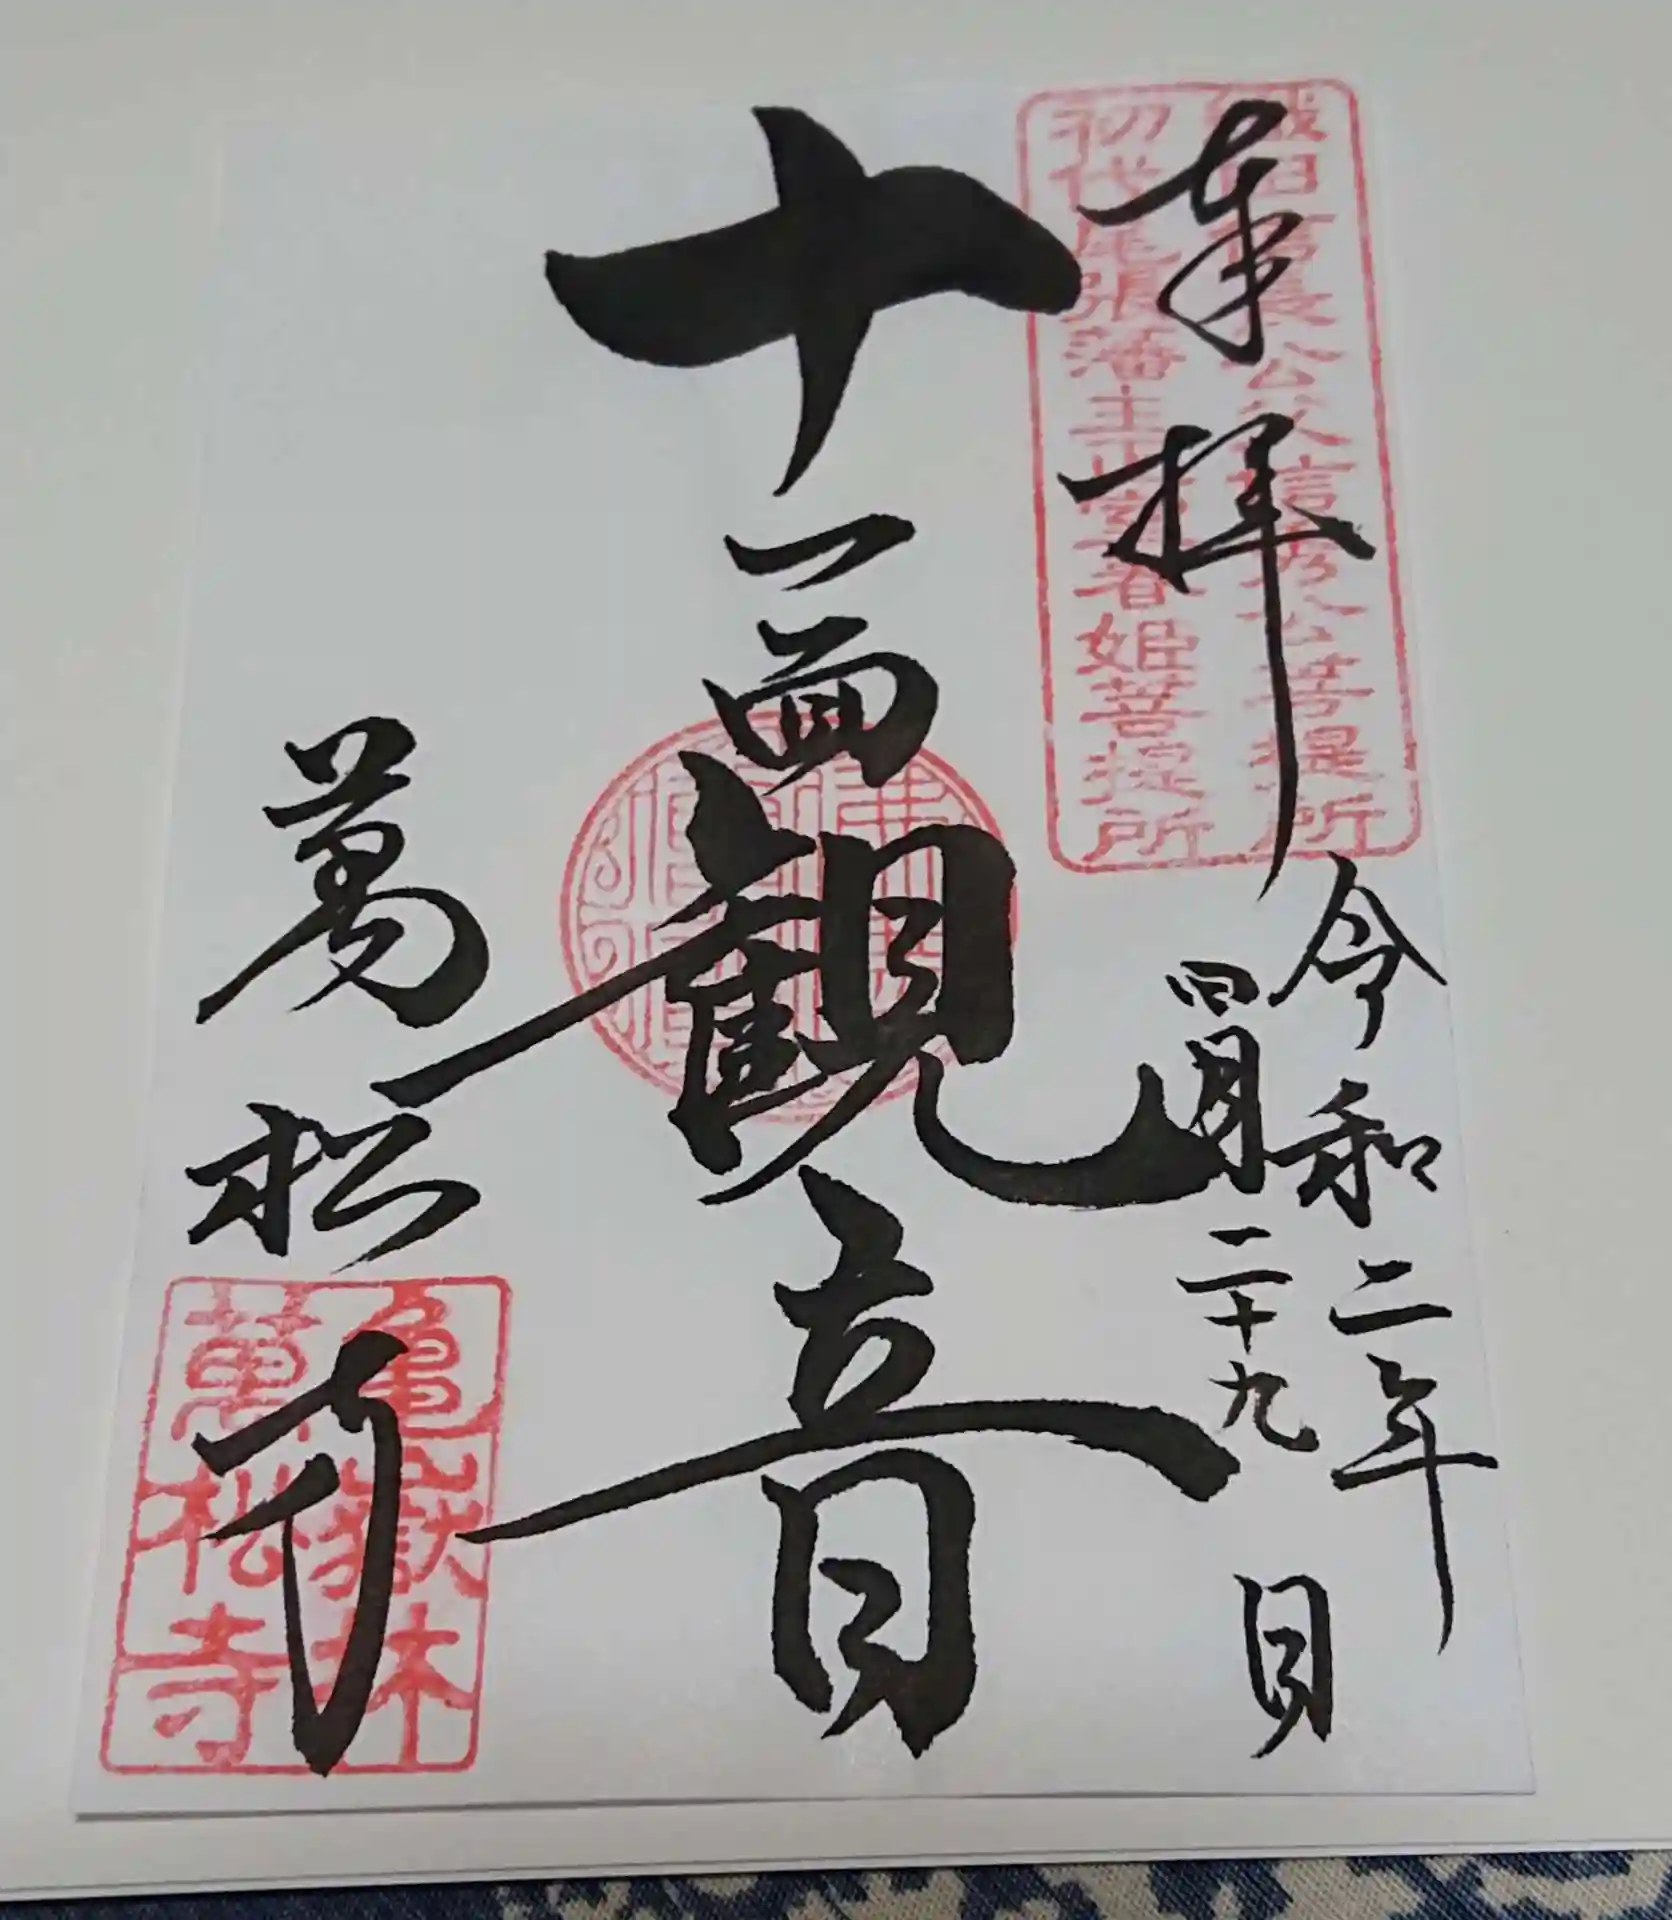 奉拝
織田信長公父信秀公菩提所
初代尾張藩主正室春姫菩提所
令和二年
四月二十九日
十一面観音
萬松寺
亀嶽林
萬松寺